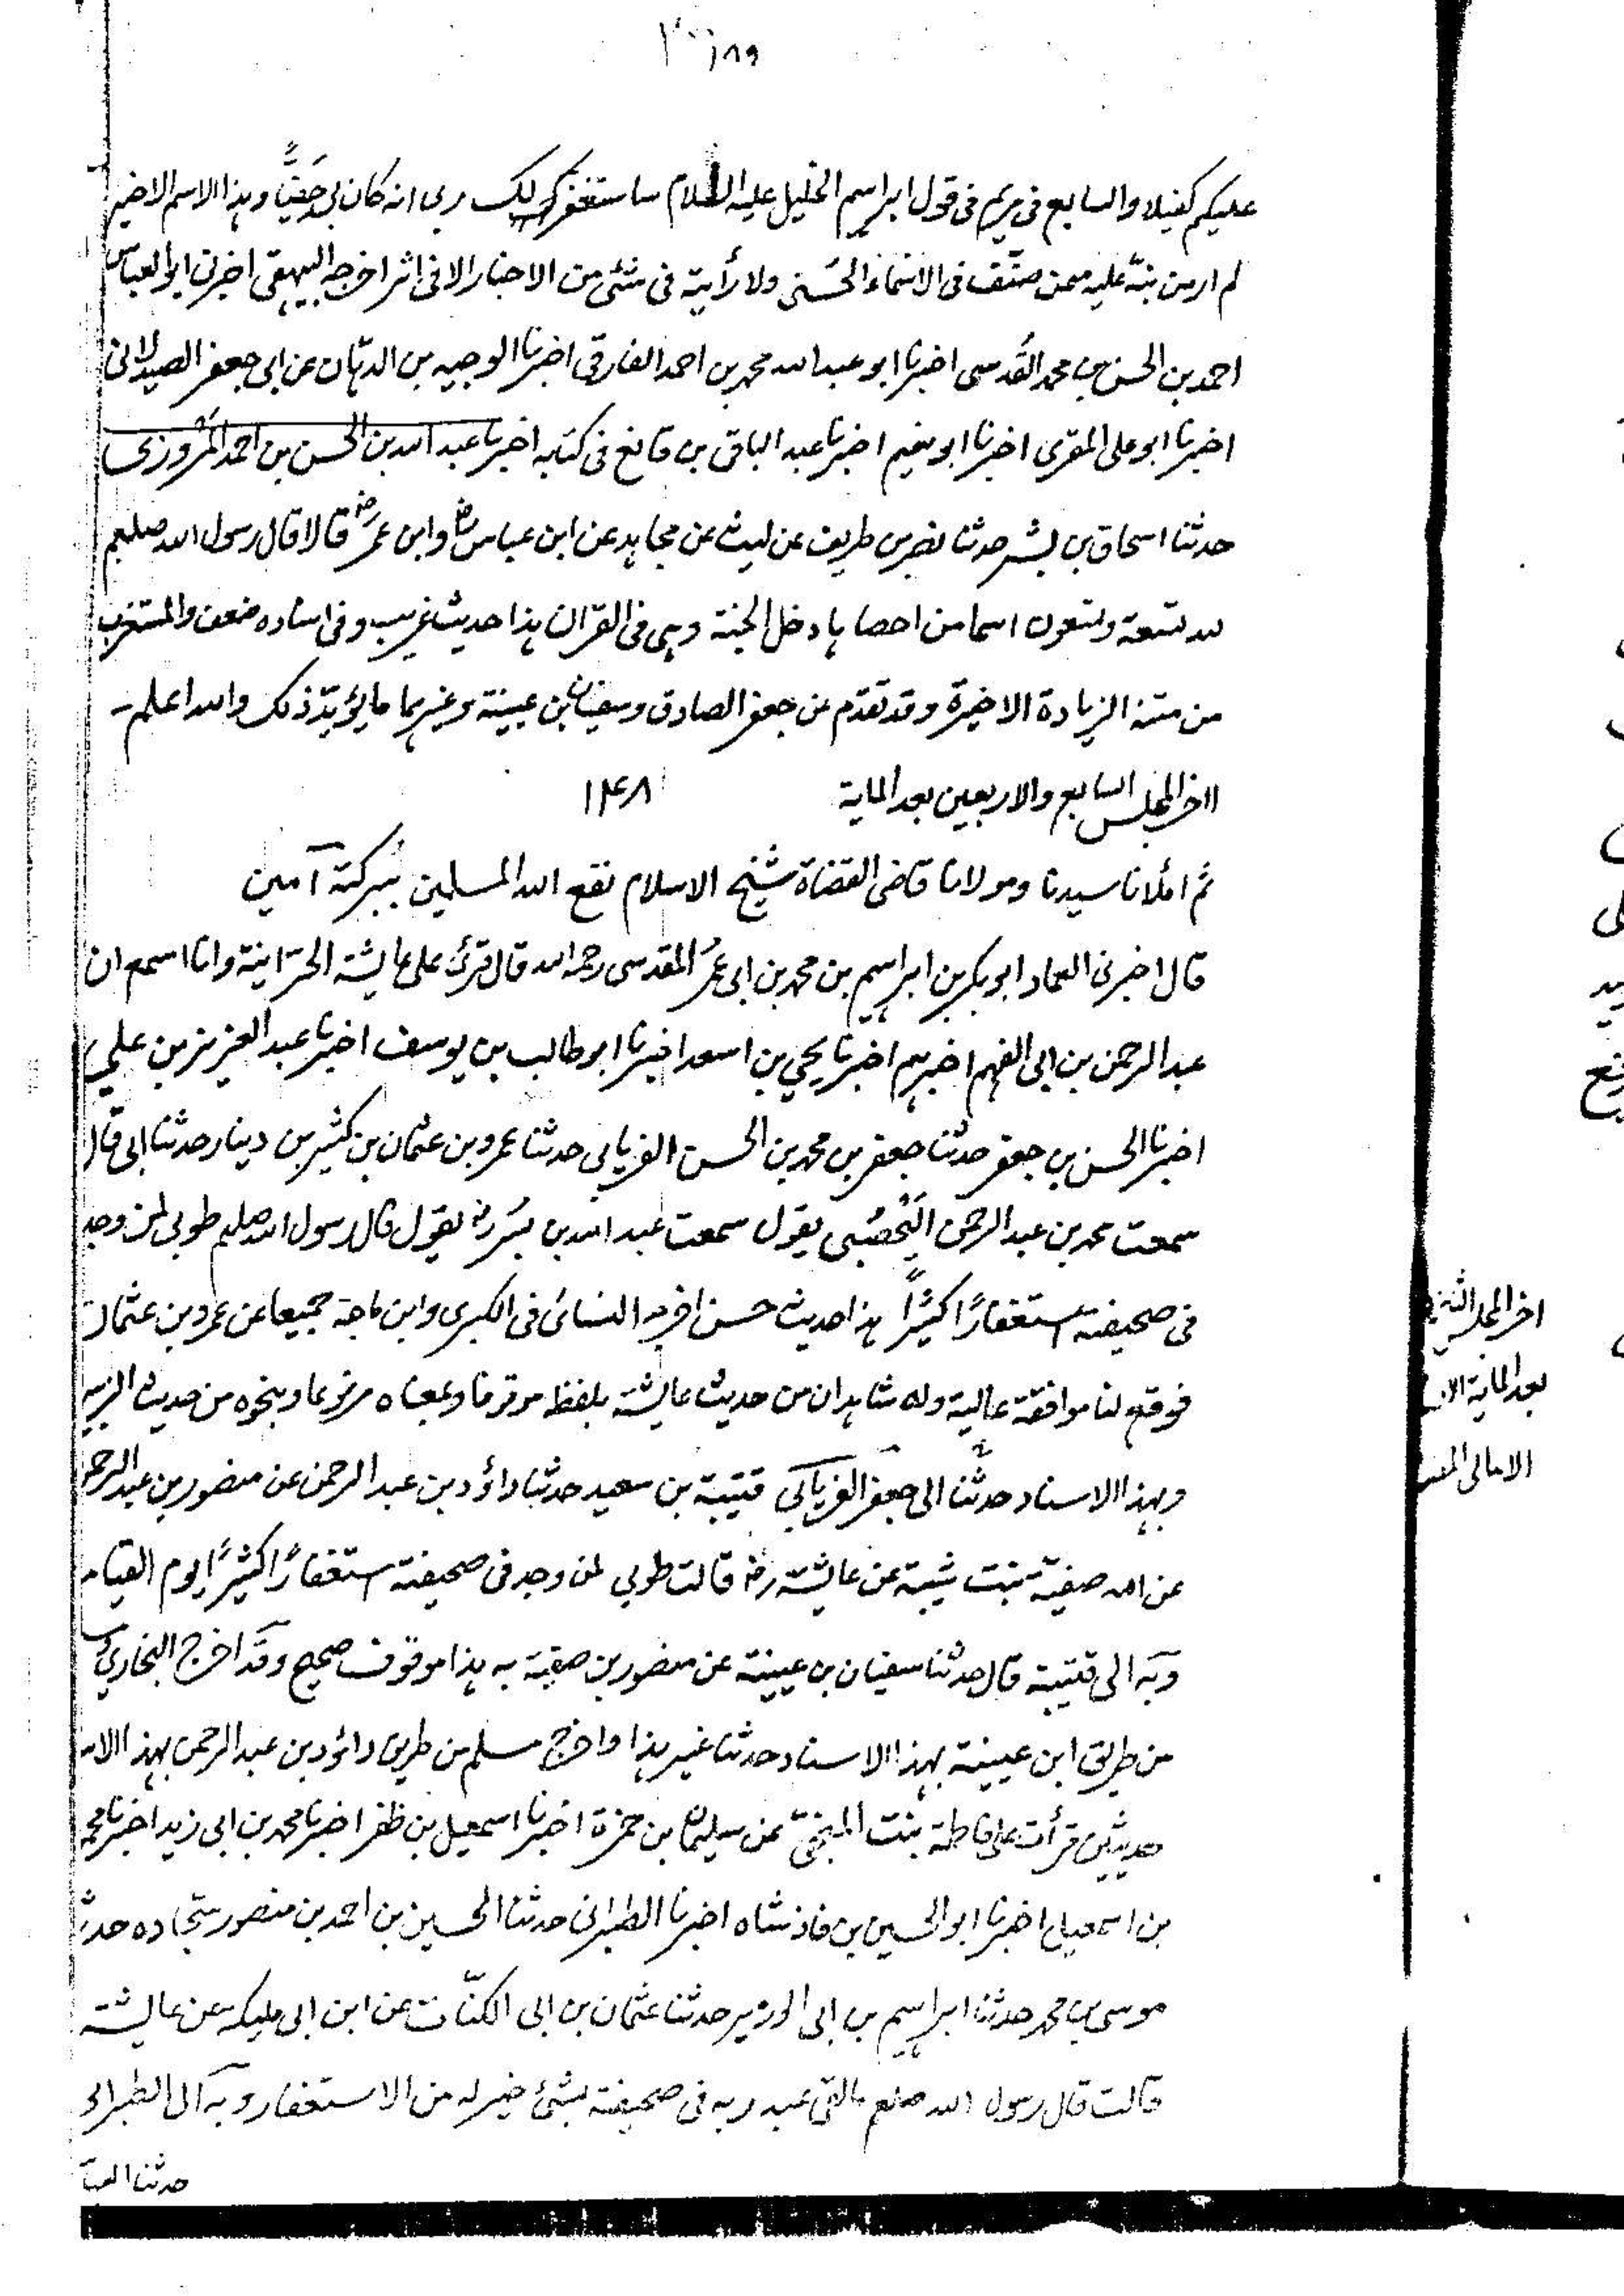 ١٨٩
عليكم كفيلا والسابع فى مريم فى قول ابراهيم الخليل عليه السلام ساستغفر لك ربى انه كان بى حَفِيًّا وهذا الاسم الاخير
لم ار من نبّه عليه ممن صنّف فى الاسماء الحُسنى ولا رأيته فى شئ من الاخبار الا فى اثر اخرجه البيهقى اخبرنى ابو العباس
احمد بن الحسن بن محمد القُدسى اخبرنا ابو عبد الله محمد بن احمد الفارقى اخبرنا الوجيه بن الدهّان عن ابى جعفر الصيدلانى
اخبرنا ابو على المقرى اخبرنا ابو نعيم اخبرنا عبد الباقى بن قانع فى كتابه اخبرنا عبد الله بن الحسن بن احمد المَرْوزى
حدثنا اسحاق بن بشر حدثنا نضر بن طريف عن ليث عن مجاهد عن ابن عباس رض وابن عمر رض قالا قال رسول الله صلعم
لله تسعة وتسعون اسما من احصاها دخل الجنة وهى فى القران هذا حديث غريب وفى اسناده ضعف والمستغرب
من متنه الزيادة الاخيرة وقد تقدم عن جعفر الصادق وسفيان بن عيينة وغيرهما ما يؤيّد ذلك والله اعلم -
اخر المجلس السابع والاربعين بعد الماية ١٤٨
ثم املأنا سيدنا ومولانا قاضى القضاة شيخ الاسلام نفع الله المسلمين ببركته آمين
قال اخبرنى العماد ابو بكر بن ابراهيم بن محمد بن ابى عمُر المقدسى رحمه الله قال قرئ على عايشة الحرّانية وانا اسمع ان
عبد الرحمن بن ابى الفهم اخبرهم اخبرنا يحي بن اسعد اخبرنا ابو طالب بن يوسف اخبرنا عبد العزيز بن على
اخبرنا الحسن بن جعفر حدثنا جعفر بن محمد بن الحسن الفريابى حدثنا عمرو بن عثمان بن كثير بن دينار حدثنا ابى قال
سمعت محمد بن عبد الرحمن اليَحْصُبى يقول سمعت عبد الله بن بُسر رض يقول قال رسول الله صلعم طوبى لمن وجد
فى صحيفته استغفارًا كثيرًا هذا حديث حسن اخرجه النسائى فى الكبرى وابن ماجة جميعا عن عمرو بن عثمان
فوقع لنا موافقة عالية وله شاهدان من حديث عايشة بلفظه موقوفا وبمعناه مرفوعا وبنحوه من حديث الزبير
وبهذا الاسناد حدثنا الى جعفر الفريابى قتيبة بن سعيد حدثنا داؤد بن عبد الرحمن عن منصور بن عبد الرحمن
عن امه صفية بنت شيبة عن عايشة رض قالت طوبى لمن وجد فى صحيفته استغفارًا كثيرًا يوم القيامة
وبه الى قتيبة قال حدثنا سفيان بن عيينة عن منصور بن صفية به هذا موقوف صحيح وقد اخرج البخارى
من طريق ابن عيينة بهذا الاسناد حدثنا غير هذا واخرج مسلم من طريق داؤد بن عبد الرحمن بهذا الا
حديثين قرأت على فاطمة بنت المنجّى عن سليمان بن حمزة اخبرنا اسمعيل بن ظفر اخبرنا محمد بن ابى زيد اخبرنا محمود
بن اسمعيل اخبرنا ابو الحسين بن فاذشاه اخبرنا الطبرانى حدثنا الحسين بن احمد بن منصور سجّاده حدثنا
موسى بن محمد حدثنا ابراهيم بن ابى الوزير حدثنا عثمان بن ابى الكنّات عن ابن ابى مليكه عن عايشة
قالت قال رسول الله صلعم ما لقى عبد ربه فى صحيفته بشئ خير له من الاستغفار وبه الى الطبرانى
حدثنا العبا
اخر المجلس الثا
بعد الماية الا
الامالى المصـ